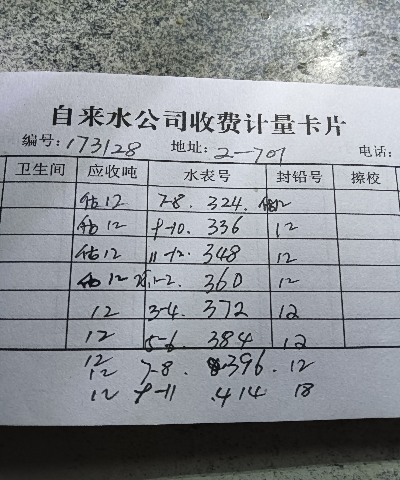 自来水公司收费计量卡片
编号: 173128 地址: 2-701 电话:
卫生间 应收吨 水表号 封铅号 擦校
估12 7-8. 324. 12
估 12 9-10. 336 12
估12 11-12. 348 12
估 12 1-2. 360 12
12 3-4. 372 12
12 5-6. 384 12
12
12 7-8. 396. 12
12 9-11 .414 18